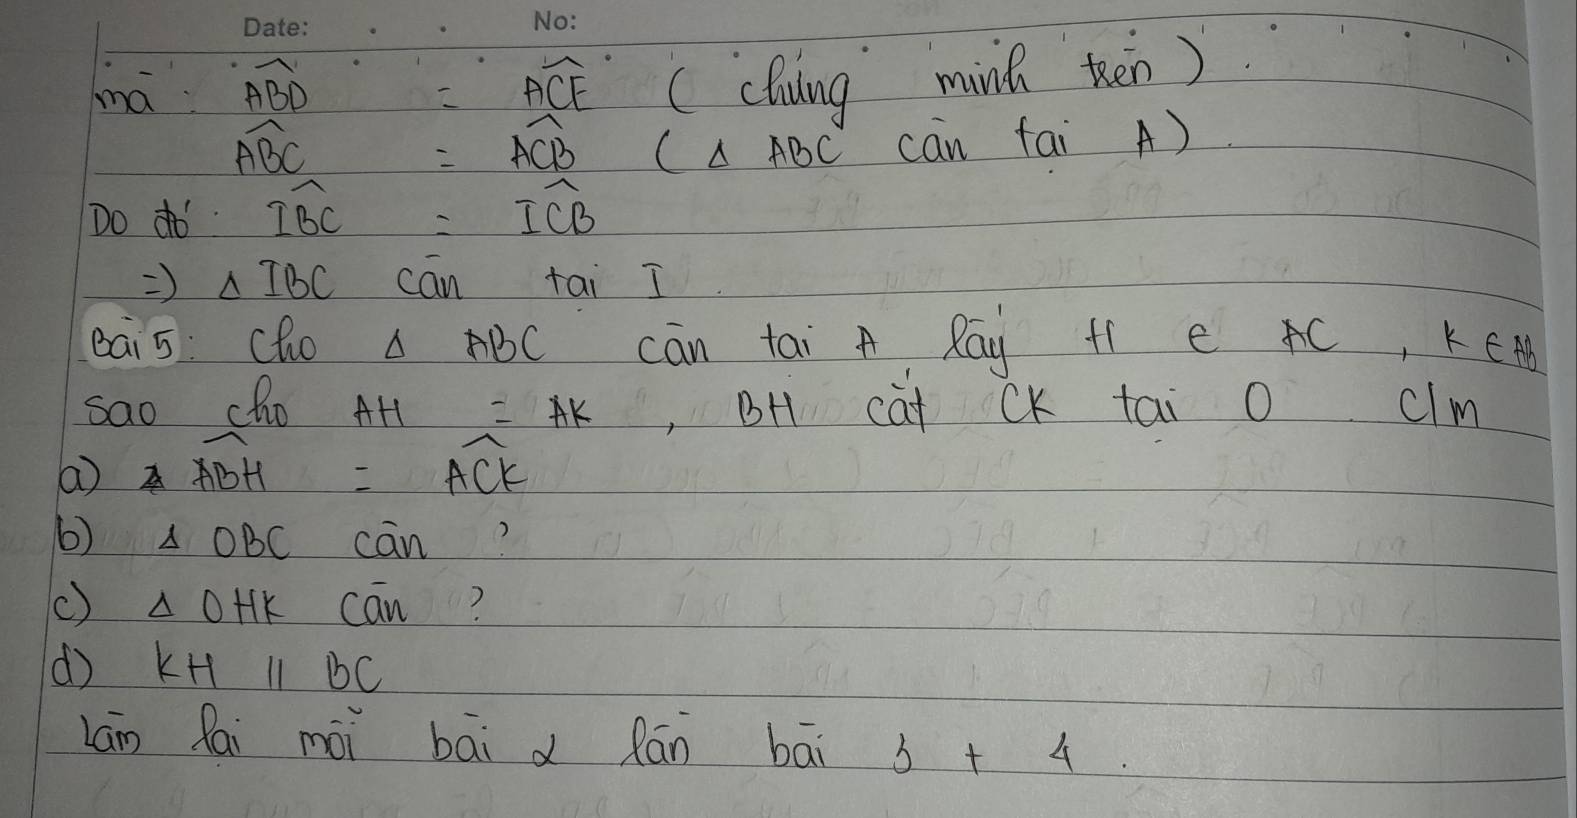 Date: No:
mà: ABD = ACE (chứng minh trên).
ABC = ACB (Δ ABC cân tại A).
Do đó: IBC = ICB
=) Δ IBC cân tại I.
Bài 5: Cho Δ ABC cân tại A lấy H ∈ AC, K ∈ AB
sao cho AH = AK, BH cắt CK tại O C/m
a) ABH = ACK
b) Δ OBC cân ?
c) Δ OHK cân ?
d) KH // BC
Làm lại mỗi bài 2 lần bài 3 + 4.